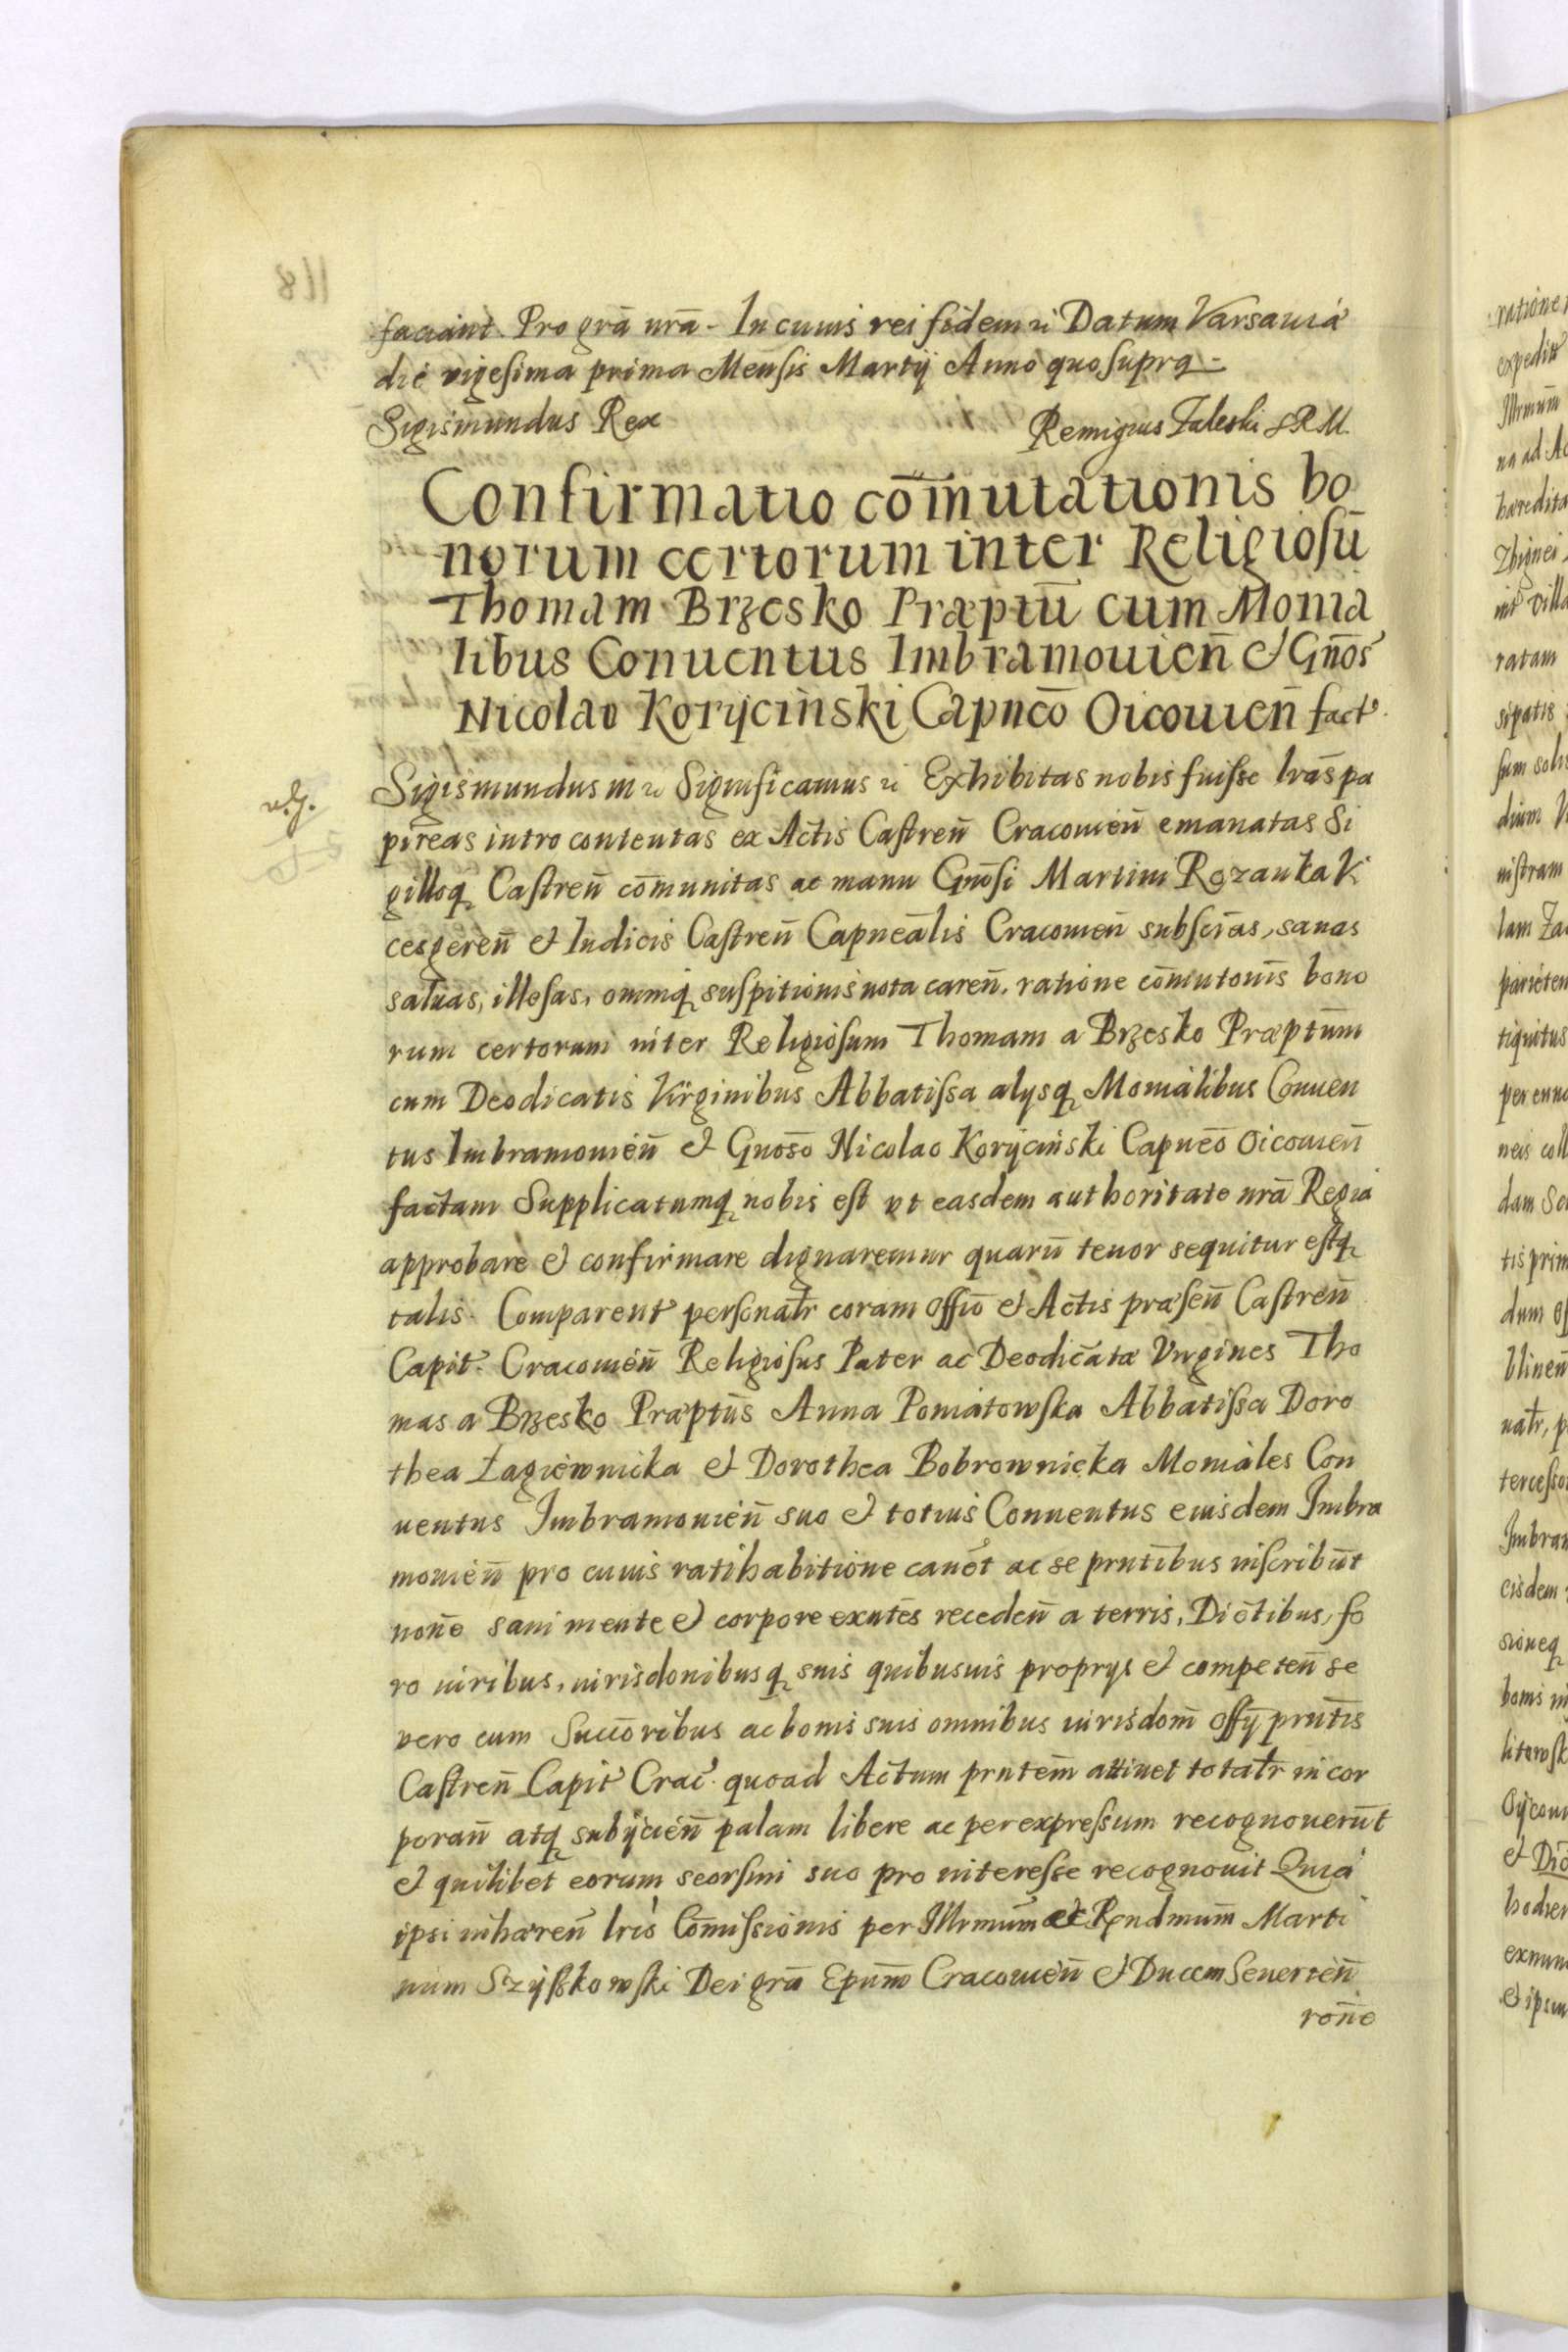 faciant. Pro grã nrã - In cuius rei fidem ꝛc Datum Varsauiá
die vigesima prima Mensis Martij Anno quo supra -
Sigismundus Rex Remigius Zaleski SRM
Confirmatio cõmutationis bo
norum certorum inter Religiosũ
Thomam Brzesko Præptũ cum Monia
libus Conuentus Imbramouien̄ et Gn̄os
Nicolao Korÿciński Capnēo Oicouien̄ fact.
Sigismundus III ꝛc Significamus ꝛc Exhibitas nobis fuisse lrãs pa
pireas intro contentas ex Actis Castren̄ Cracouien̄ emanatas Si
gilloq Castren̄ cõmunitas ac manu Gnõsi Martini Rozanka Vi
cesgeren̄ et Iudicis Castren̄ Capneãlis Cracouien̄ subscr̃as, sanas
saluas, illesas, omniq suspitionis nota caren̄. ratione cõmutonis̃ bono
rum certorum inter Religiosum Thomam a Brzesko Præptũm
cum Deodicatis Virginibus Abbatissa alysq Monialibus Conuen
tus Imbramouien̄ et Gnosõ Nicolao Korÿciński Capneõ Oicouien̄
factam Supplicatumq nobis est vt easdem authoritate nrã Regia
approbare et confirmare dignaremur quarũ tenor sequitur estq
talis. Comparent personalr̃ coram Offiõ et Actis præsen̄ Castren̄
Capit. Cracouien̄ Religiosus Pater ac Deodicatæ Virgines Tho
mas a Brzesko Præptũs Anna Poniatowska Abbatissa Doro
thea Łagiewnicka et Dorothea Bobrownicka Moniales Con
uentus Imbramouien̄ suo et totius Conuentus eiusdem Imbra
mouien̄ pro cuius ratihabitione cauẽt ac se prntĩbus inscribũt
noñe sani mente et corpore exntẽs receden̄ a terris, Diõtibus, fo
ro iuribus, iurisdonibusq suis quibusuis propryis et competen̄ se
vero cum Succõribus ac bonis suis omnibus iurisdom̃ Offÿ prntĩs
Castren̄ Capit Crac̃. quoad Actum prntẽm attinet totalr̃ incor
poran̄ atq subijcien̄ palam libere ac per expressum recognouerũt
et quilibet eorum seorsim suo pro interesse recognouit Quia
ipsi inhæren̄ lris̃ Cõmissionis per Illrmũm et Rndmũm Marti
num Szÿszkowski Dei grã Epũm Cracouien̄ et Ducem Seuerien̄
roñe